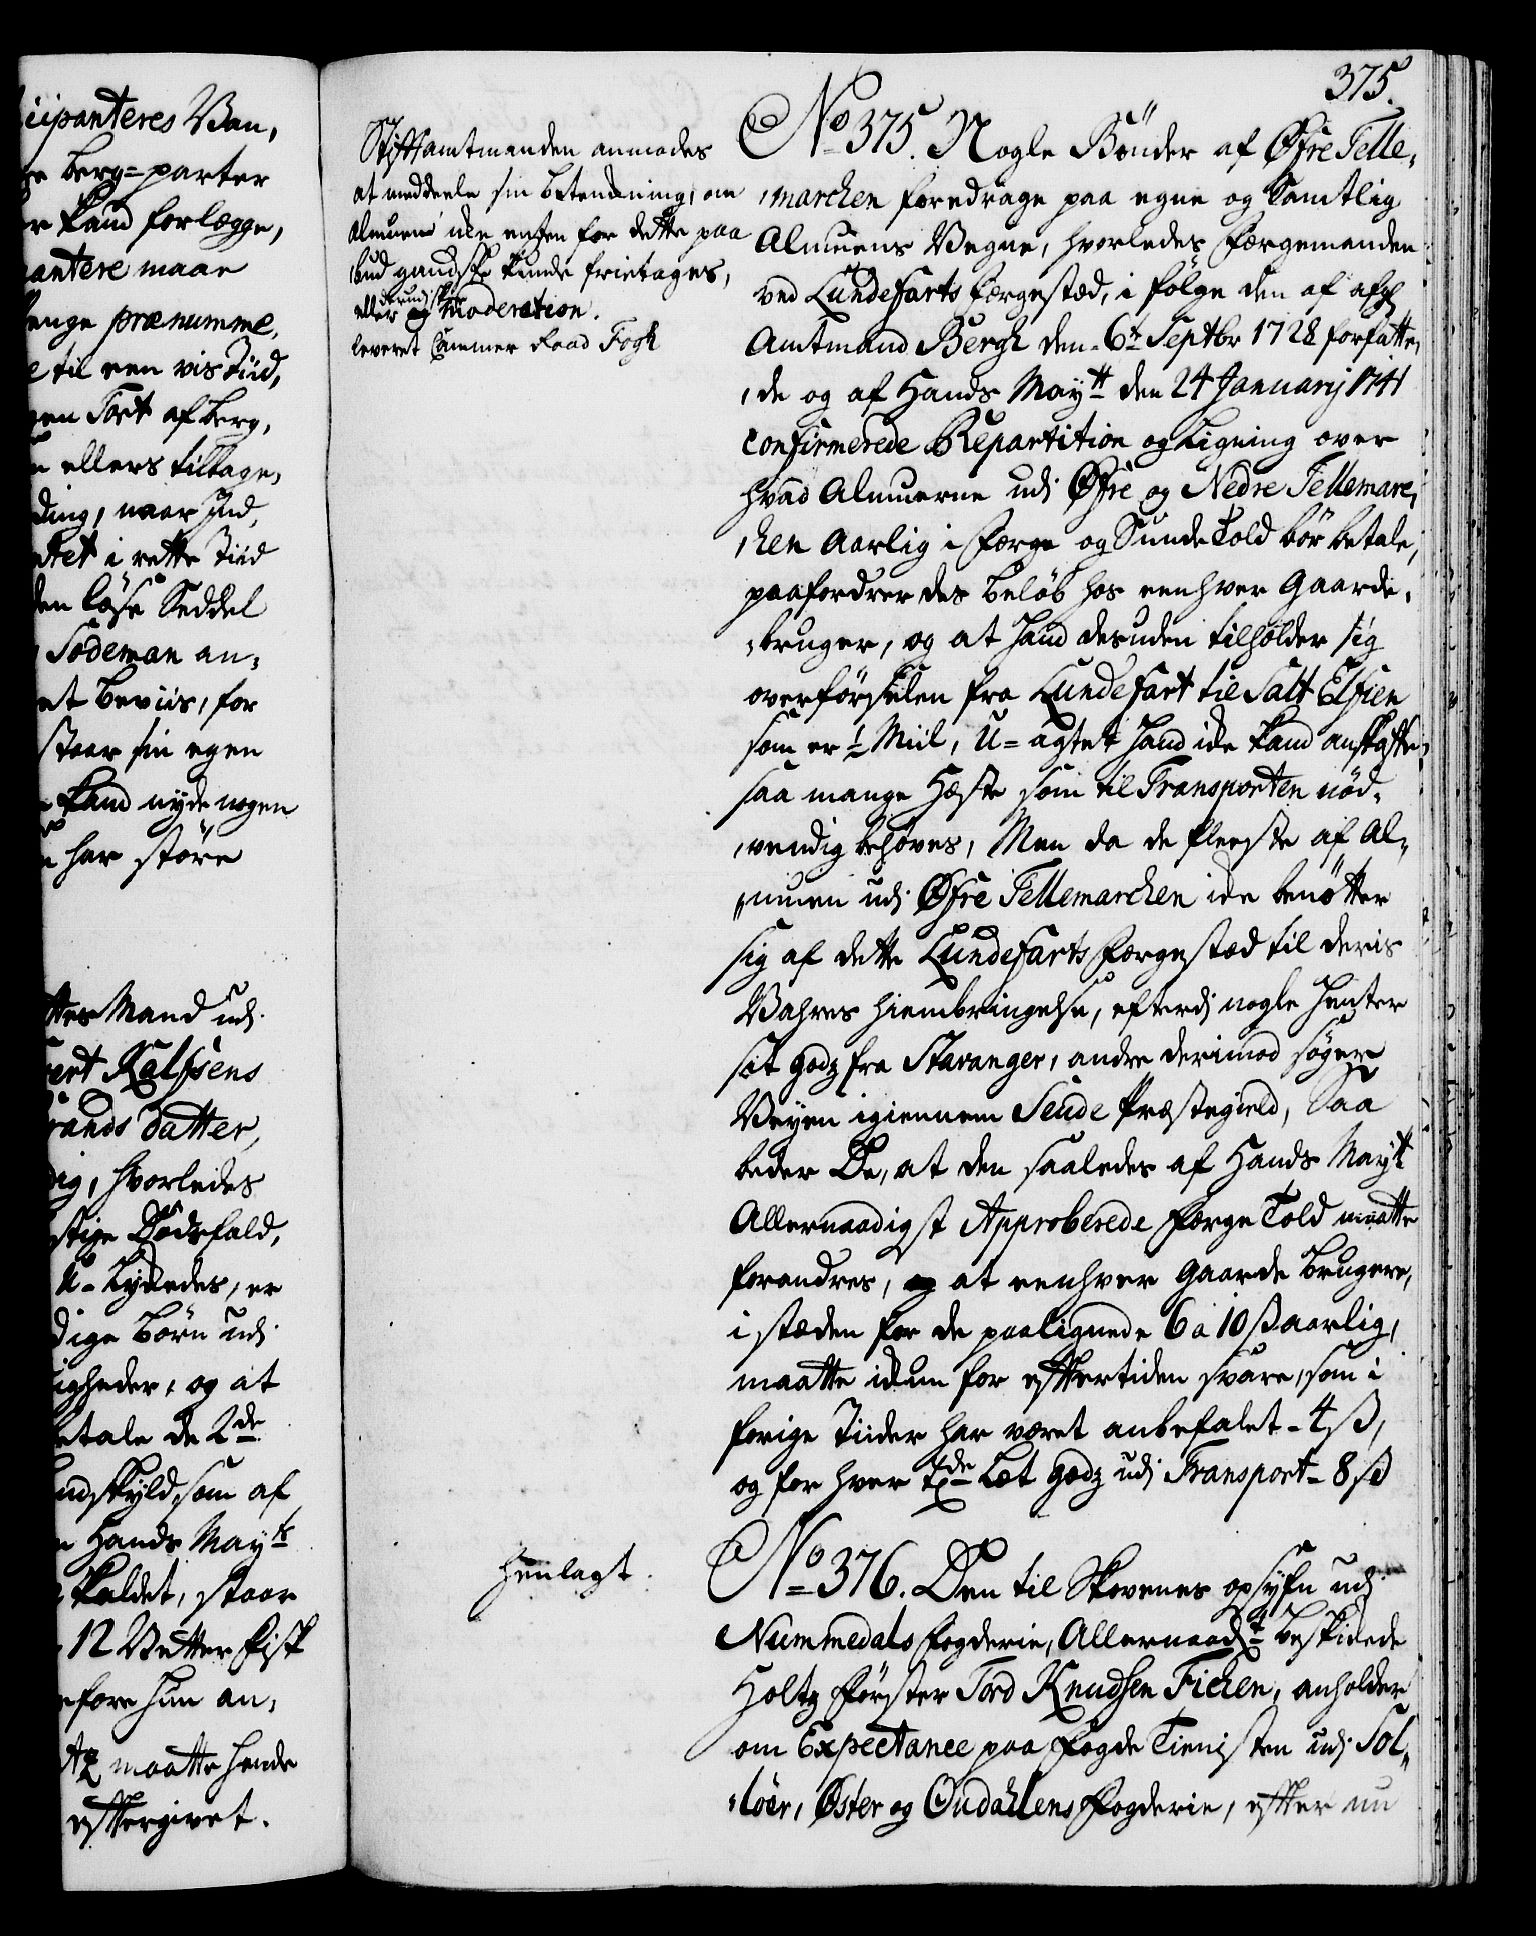 icipanteres Van,
berg-parter
r kand forlægge,
antere maae
enge prænumme,
til een vis Tiid,
en Fort af berg,
ellers tiltage,
ding, naar Ind,
tet i rette Tiid
en løse Seddel
Sodeman an,
et Beviis, for
staar sin egen
kand nyde nogen
har större
ttes Mand udj
ert Ralfsens
rands datter,
dig, hvorledes
stige Dödsfald,
U-Lykkedes, er
dige Börn udj
igheder, og at
etale de 2de
ndskyld, som af
Hands Mayts
kaldet, staar
12 Vetter Fisk
efore hun an,
maatte hende
eftergivet.
375.
Stiftamtmanden anmodes
at meddeele sin betenckning, om
Almuen icke enten for dette paa
bud gandske kunde fritages,
eller derudj skee Moderation.
leveret Cammer Raad Fogh
No 375. Nogle Bönder af Öfre Telle,
,marchen foredrage paa egne og samtlig
Almuens Vegne, hvorledes Færgemanden
ved Lundefarts Færgestæd, i fölge den af afg
Amtmand Bergh den 6te Septbr 1728 forfatte,
,de og af Hands Maytt den 24 Januarij 1741
confirmerede Repartition og Ligning over
hvad Almuerne udj Öfre og Nedre Tellemarc,
,hen Aarlig i Færge og Sunde Told bör betale,
paafordrer des Beløb hos eenhver Gaarde,
,bruger, og at hand desuden tilholder sig
overförselen fra Lundefart til Salt Elfven
som er ½ Miil, U-agtet hand icke kand anskaffe
saa mange Heste som til Transporten nöd,
,vendig behøves, Men da de fleeste af Al,
,muen udj Öfre Tellemarchen icke benøtter
sig af dette Lundefarts Færgestæd til deris
Vahres Hiembringelse, efterdj nogle henter
sit godz fra Stavanger, andre derimod söger
Veyen igiennem Seude Præstegield, Saa
beder De, at den saaledes af Hands Maytt
Allernaadigst Approberede Færge Told maatte
forandres, at eenhver Gaarde Brugere,
i stæden for de paalignede 6 a 10 ß aarlig,
maatte ickun for eftertiden svare, som i
forige Tiider har været anbefalet - 4 ß,
og for hver Tde Læt godz udj Transport - 8 ß
Henlagt.
No 376. Den til Skovenes opsyn udj
Nummedals Fogderie, Allernaadt beskickede
Holtz Förster Tord Knudsen Ficken, anholder
om Expectance paa Fogde Tienisten udj Sol,
,löer, Öster og Oudahlens Fogderie, efter nu